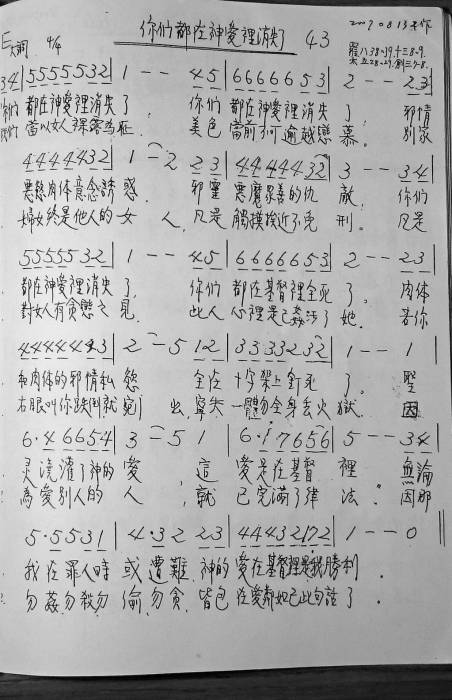 你們都在神愛裡消失了 43
E大調 4/4
羅八38-39.十三8-9.
太五28-29.創三7-8.
34|5555532|1--45|6666653|2--23|
你們 都在神愛裡消失 了, 你們 都在神愛裡消失 了 邪情
當以女人裸露為征 美色 當前不可逾越戀 慕。 別家
4444432|1--2 23|4444432|3--34|
惡慾肉体意念誘 惑. 邪靈 惡魔 的仇 敵. 你們
婦女終是他人的女 人,凡是 觸摸挨近不免 刑。 凡是
5555532|1--45|6666653|2--23|
都在神愛裡消失 了, 你們 都在基督裡全死 了。 肉体
對女人有貪戀之 見. 此人 心裡是已姦污了 她. 若你
4444443|2--5 12|3333232|1--1|
和肉体的邪情私 慾 全在 十字架上釘死 了。 聖
右眼叫你跌倒就 宛 出,寧失 一體勿全身丟火 獄. 因
6·46654|3--5 1|6·17656|5--34|
灵澆灌了神的 愛 ,這 愛是在基督 裡 無論
為愛別人的 人 ,就 已完滿了律 法。因那
5·5531|4·32 23|4443212|1--0||
我在罪人時 或 遭難.神的 愛在基督裡是我勝利.
勿姦勿殺勿 偷.勿貪.皆包 在愛鄰如己此句話 了.